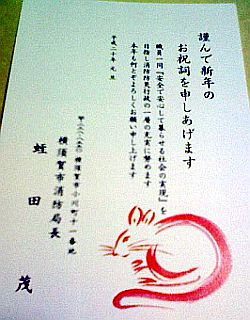 謹んで新年の
お祝詞を申しあげます
職員一同『安全で安心して暮らせる社会の実現』を
目指し消防防災行政の一層の充実に努めます
本年も何とぞよろしくお願い申し上げます
平成二十年 元旦
横須賀市小川町十一番地
横須賀市消防局長
蛭田 茂